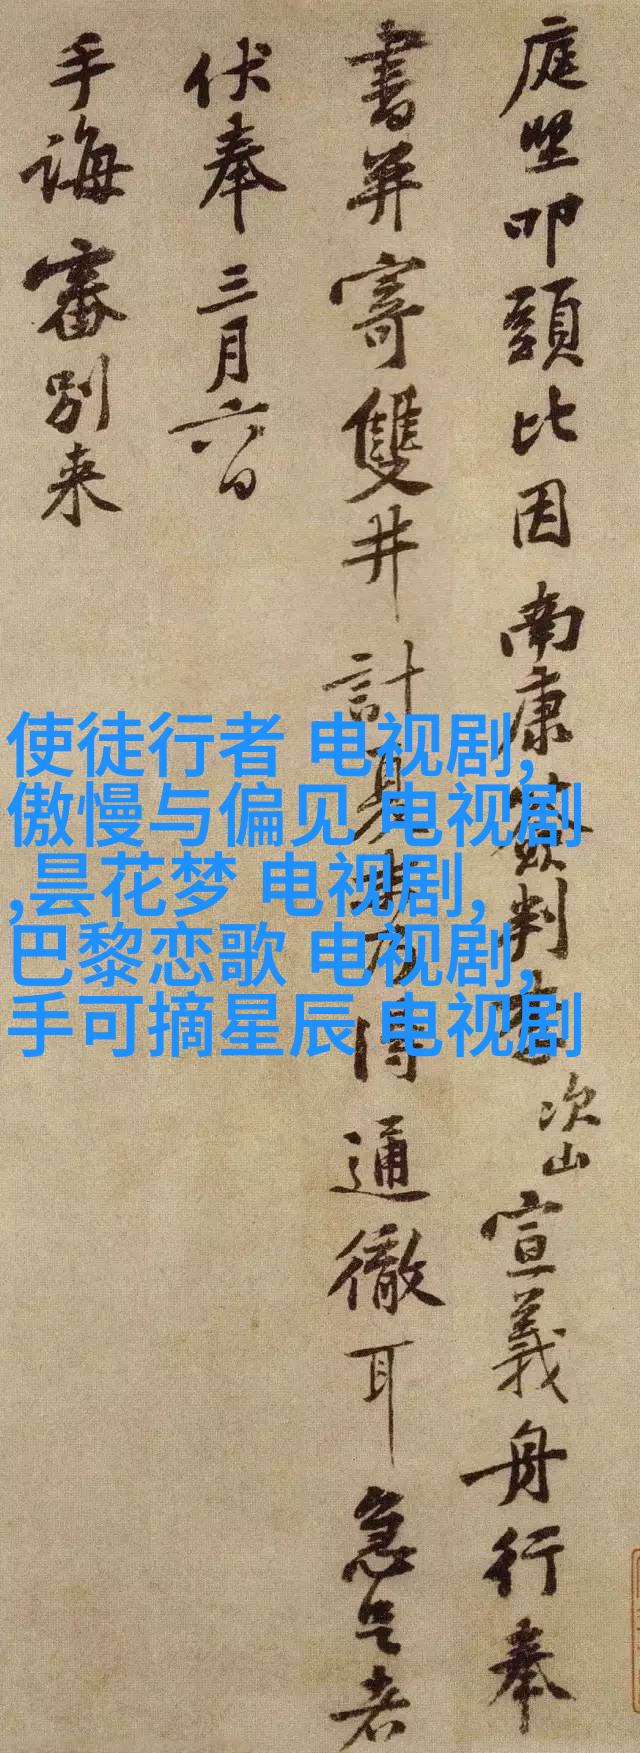 庭堅叩頭比因南康判次山宣義舟行奉
書并寄雙井計夏得通徹耳急足者
伏奉三月六日
手誨審別来
使徒行者 电视剧,
傲慢与偏见 电视剧
,昙花梦 电视剧,
巴黎恋歌 电视剧,
手可摘星辰 电视剧